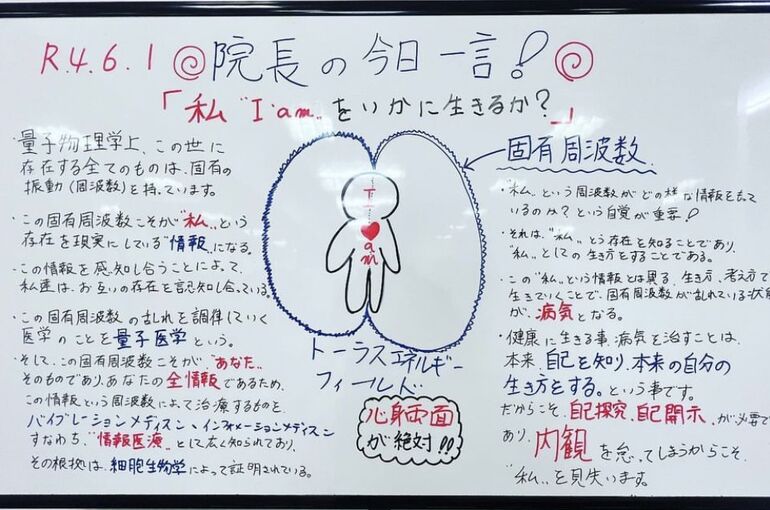 R.4.6.1 院長の今日一言!
「私 "I am" をいかに生きるか?」
・量子物理学上、この世に
存在する全てのものは、固有の
振動(周波数)を持っています。
・この固有周波数こそが"私"という
存在を現実にしている"情報"になる。
・この情報を感知し合うことによって、
私達は、お互いの存在を認知し合っている。
・この固有周波数の乱れを調律していく
医学のことを量子医学という。
・そして、この固有周波数こそが、"あなた"
そのものであり、あなたの全情報であるため、
この情報という周波数によって治療するものを、
バイブレーションメディスン、インフォメーションメディスン
すなわち、"情報医療"として広く知られており、
その根拠は、細胞生物学によって証明されている。
I
am
トーラスエネルギー
フィールド
心身両面
が絶対!!
固有周波数
・"私"という周波数がどの様な情報をもって
いるのか?という自覚が重要!
・それは、"私"とう存在を知ることであり、
"私"としての生き方をすることである。
・この"私"という情報とは異る、生き方、考え方で
生きていくことで、固有周波数が乱れている状態
が、病気となる。
・健康に生きる事、病気を治すことは、
本来、自己を知り、本来の自分の
生き方をする。という事です。
だからこそ、自己探究、自己開示、が必要で
あり、内観を怠ってしまうからこそ、
"私"を見失います。